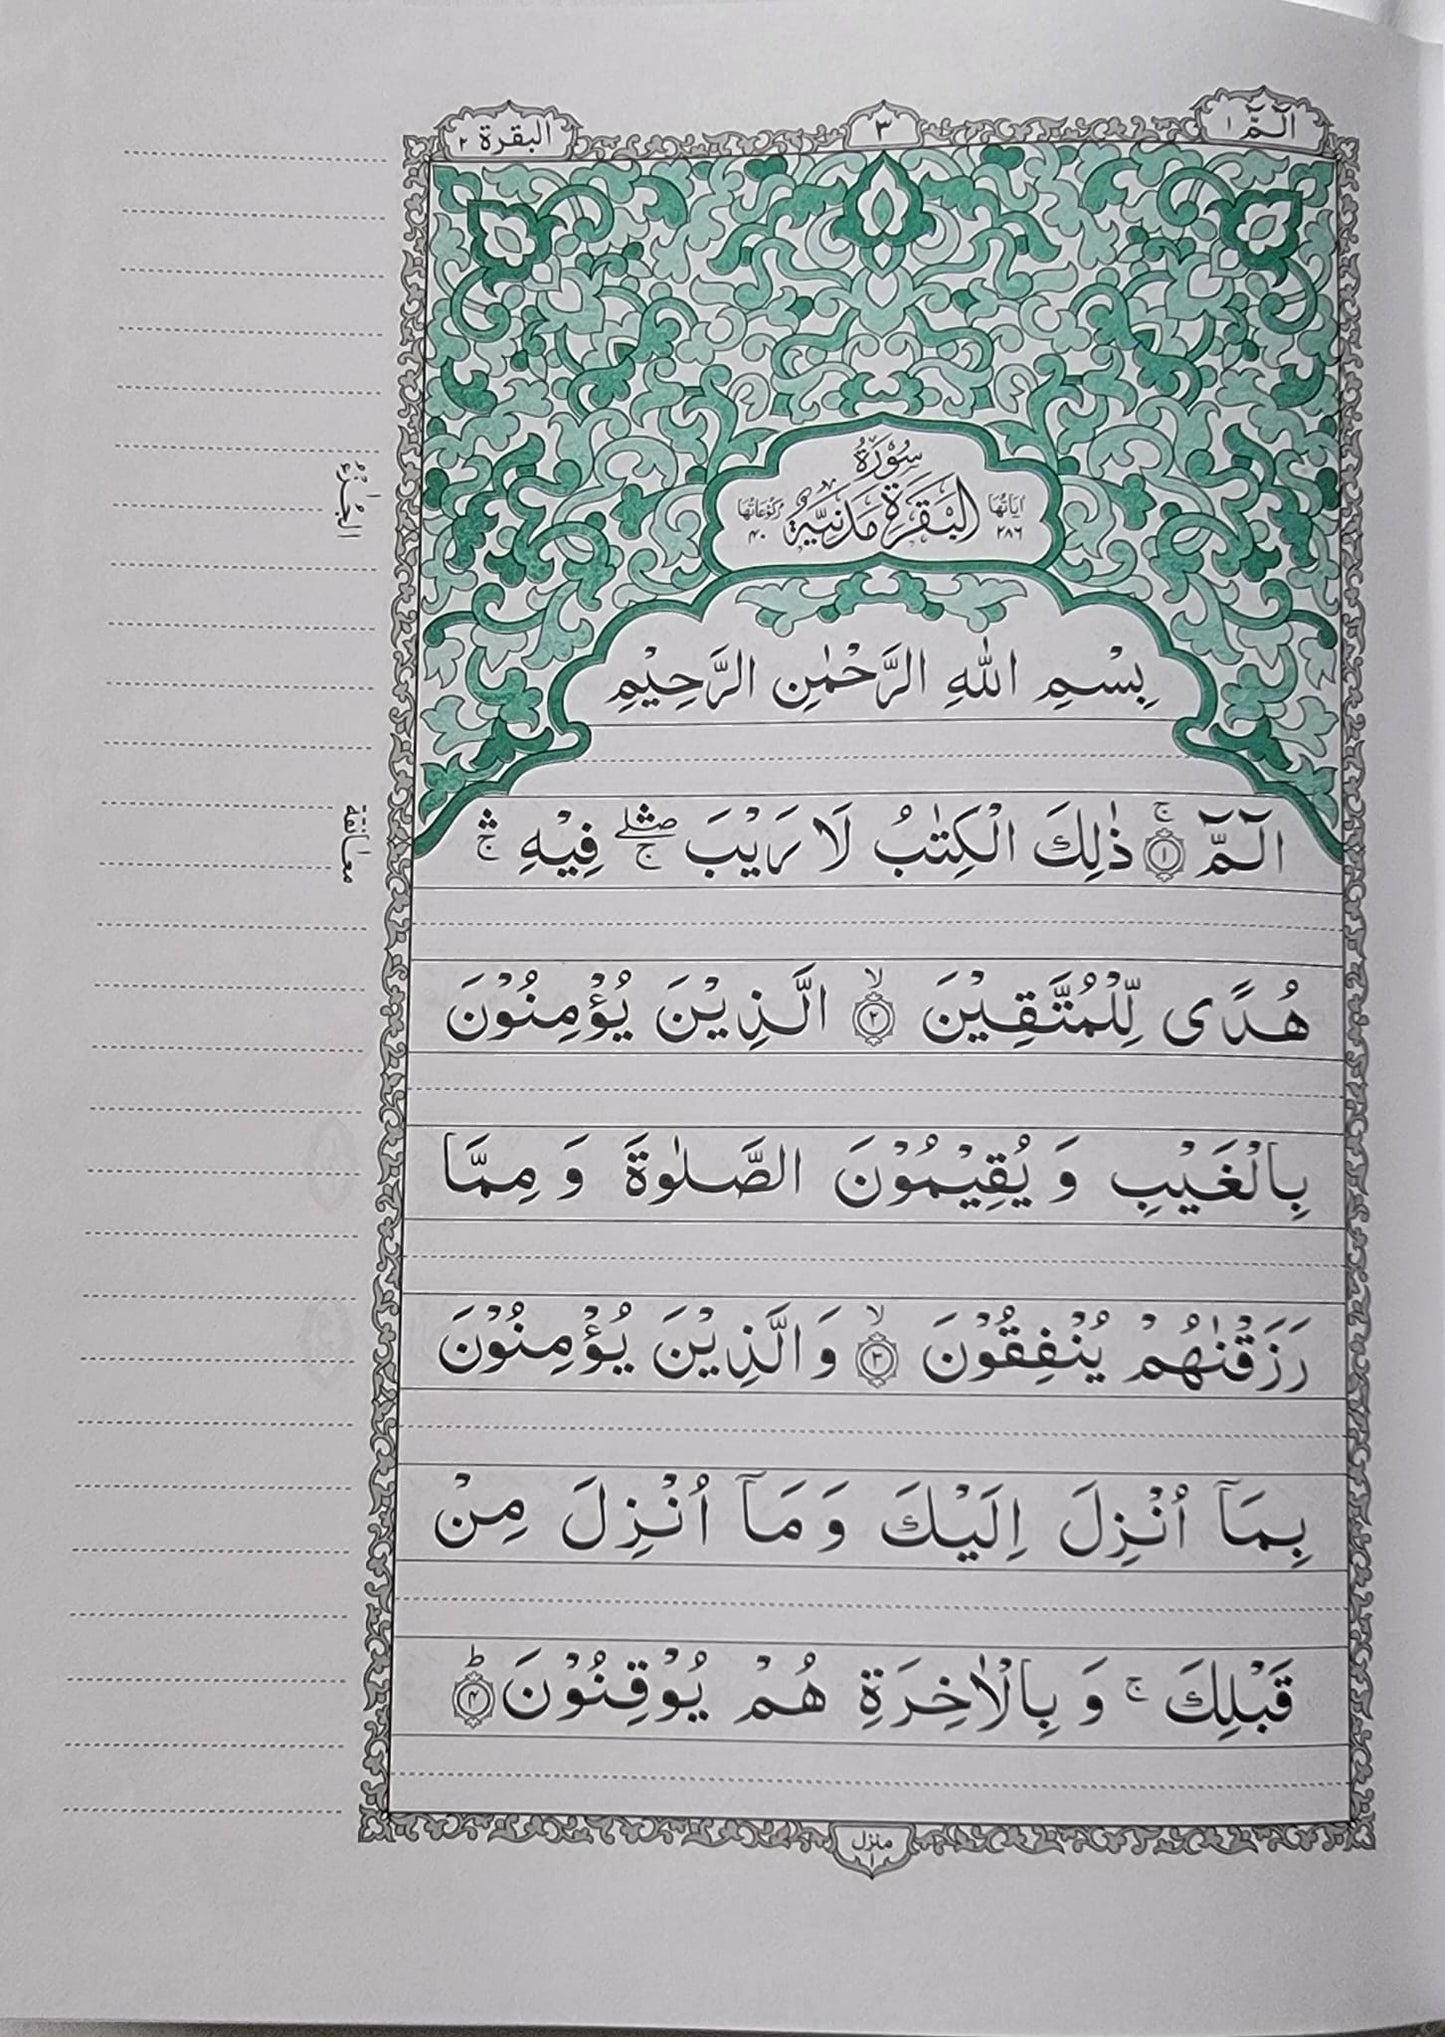 الٓمّٓ ١
٣
البقرة ٢
سُوْرَةُ
اٰيَاتُهَا ٢٨٦
الْبَقَرَةِ مَدَنِيَّةٌ
رُكُوْعَاتُهَا ٤٠
بِسْمِ اللهِ الرَّحْمٰنِ الرَّحِيْمِ
الٓمّٓ ۚ﴿١﴾ ذٰلِكَ الْكِتٰبُ لَا رَيْبَ ۛۖۚ فِيْهِ ۛۚ
هُدًى لِّلْمُتَّقِيْنَ ۙ﴿٢﴾ الَّذِيْنَ يُؤْمِنُوْنَ
بِالْغَيْبِ وَ يُقِيْمُوْنَ الصَّلٰوةَ وَ مِمَّا
رَزَقْنٰهُمْ يُنْفِقُوْنَ ۙ﴿٣﴾ وَ الَّذِيْنَ يُؤْمِنُوْنَ
بِمَاۤ اُنْزِلَ اِلَيْكَ وَ مَاۤ اُنْزِلَ مِنْ
قَبْلِكَ ۚ وَ بِالْاٰخِرَةِ هُمْ يُوْقِنُوْنَ ؕ﴿٤﴾
الجُزْءُ
معانقة
منزل ١